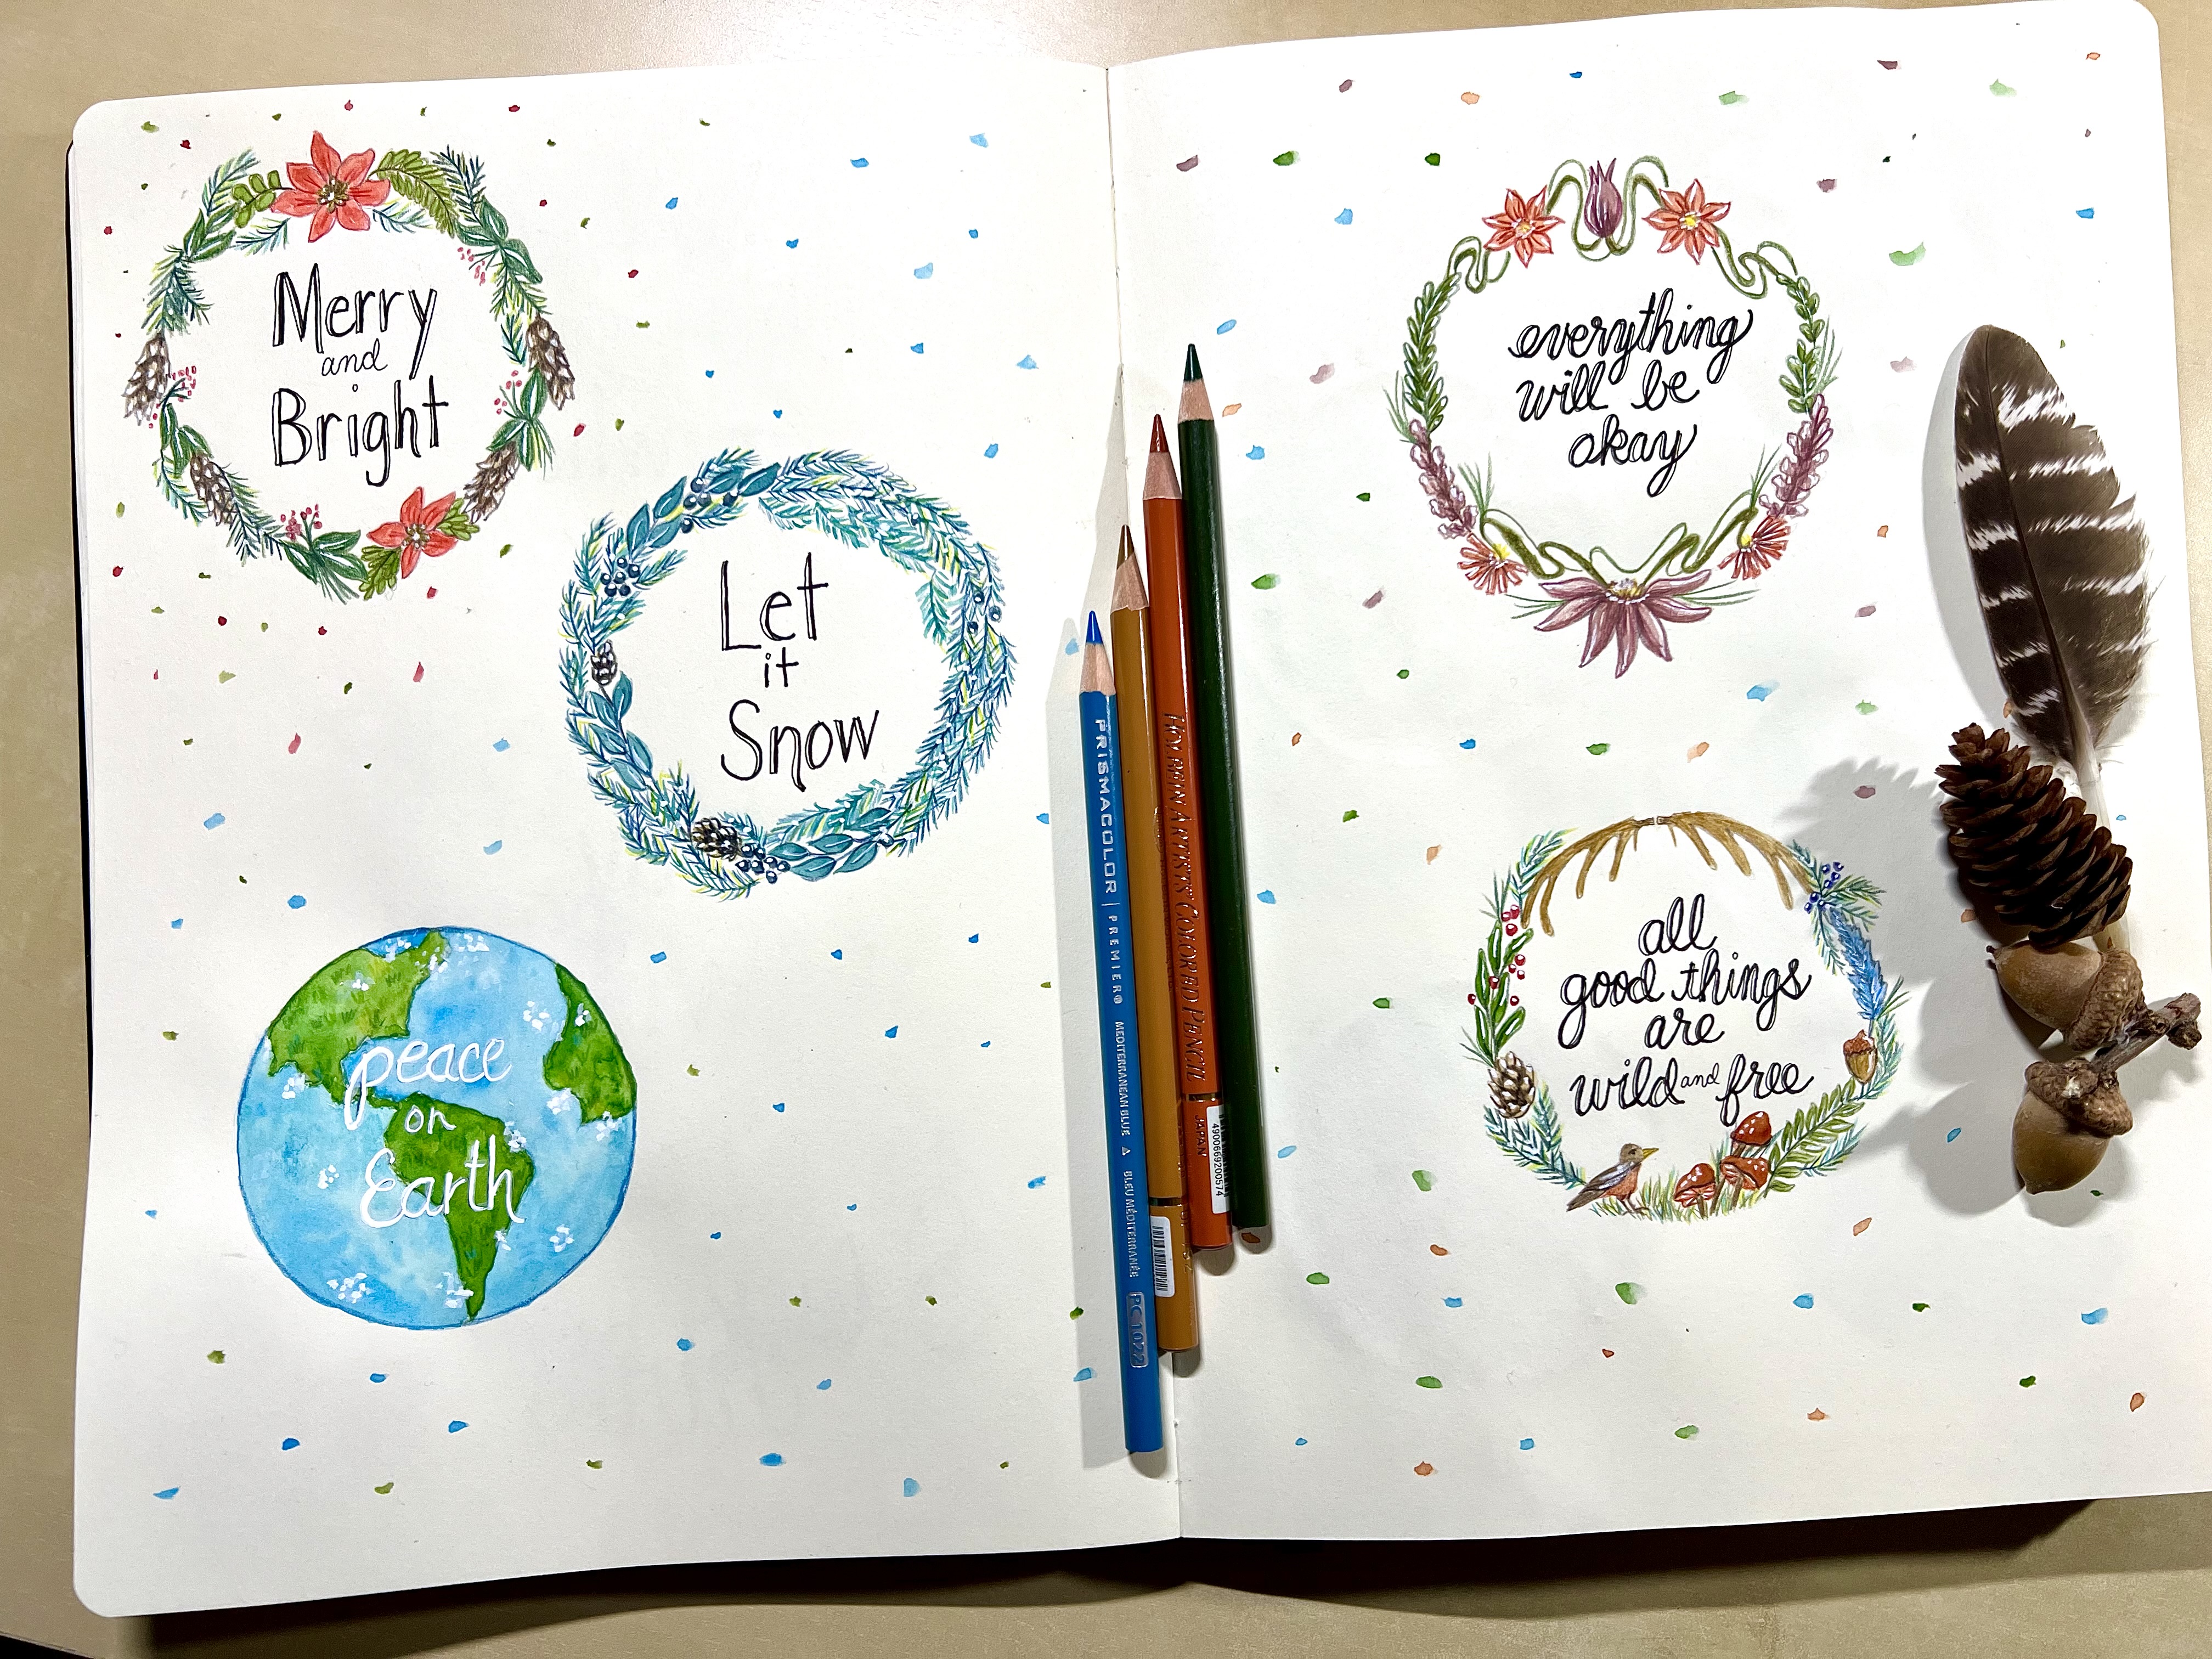 Merry
and
Bright
Let
it
Snow
peace
on
Earth
PRISMACOLOR | PREMIER® MEDITERRANEAN BLUE BLEU MÉDITERRANÉE PC 1022
HOLBEIN ARTISTS' COLORED PENCIL JAPAN
4900669200574
everything
will be
okay
all
good things
are
wild and free